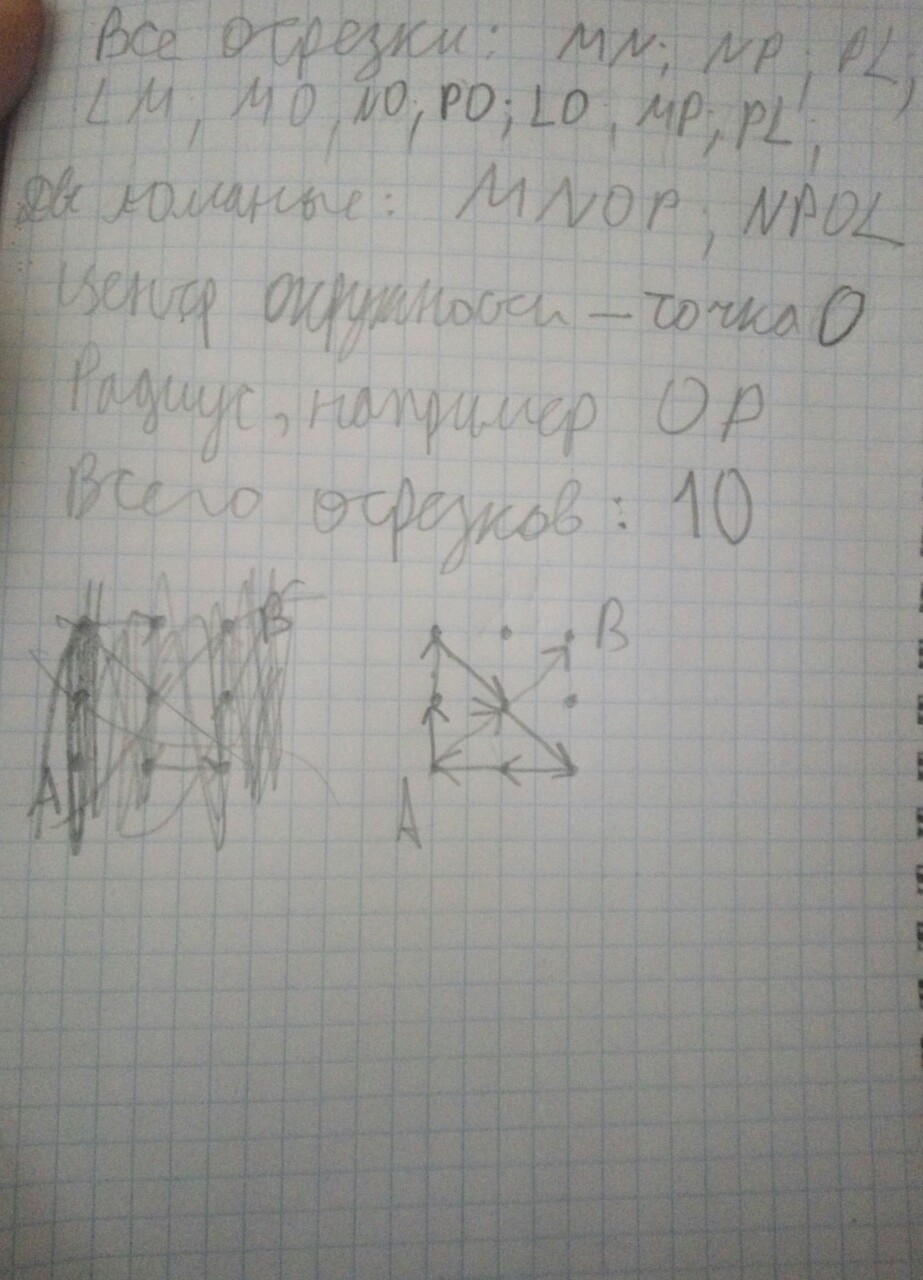 Все отрезки: MN; NP; PL,
LM, MO, NO; PO; LO, MP; PL;
Две ломаные: MNOP; NPOL
Центр окружности – точка O
Радиус, например OP
Всего отрезков: 10
B B
A A